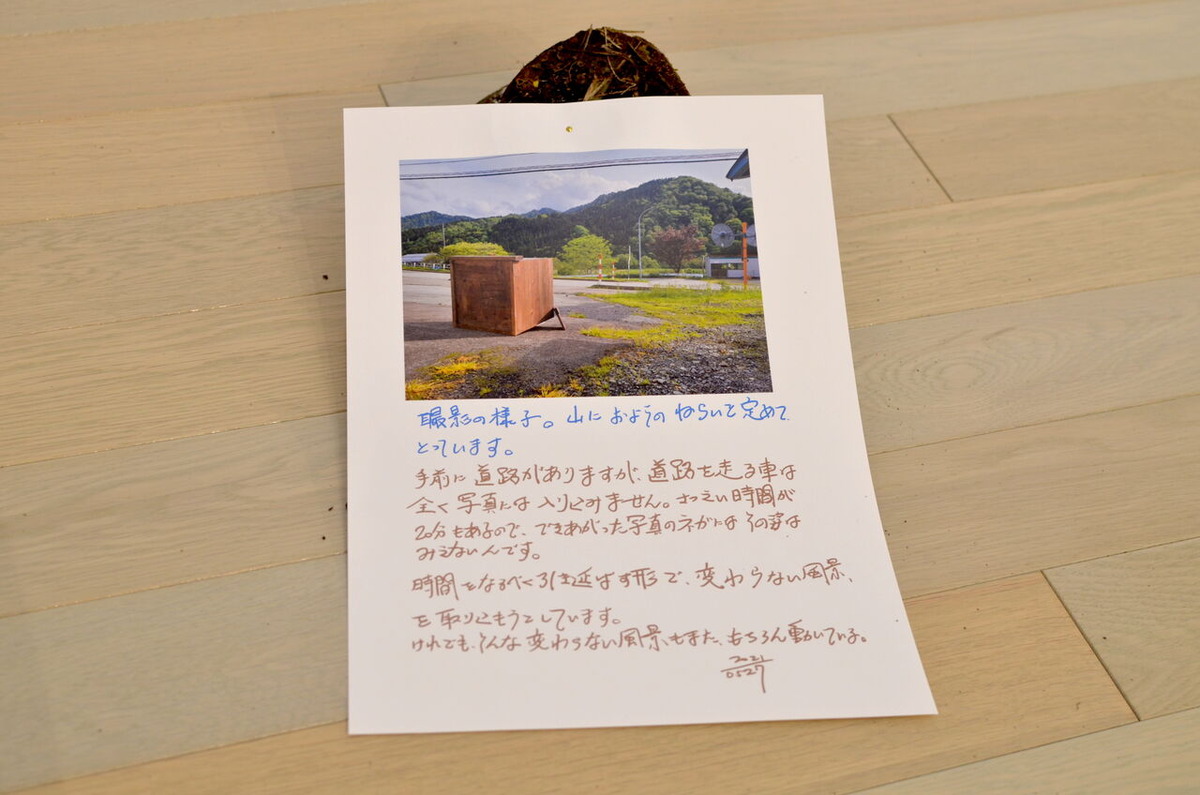 撮影の様子。山におようのねらいを定めて
とっています。
手前に道路がありますが、道路を走る車は
全く写真には入り込みません。さつえい時間が
20分もあるので、できあがった写真のネガにはその姿は
みえないんです。
時間をなるべく引き延ばす形で、変わらない風景、
を取りこもうとしています。
けれども、そんな変わらない風景もまた、もちろん動いている。
2021
0527